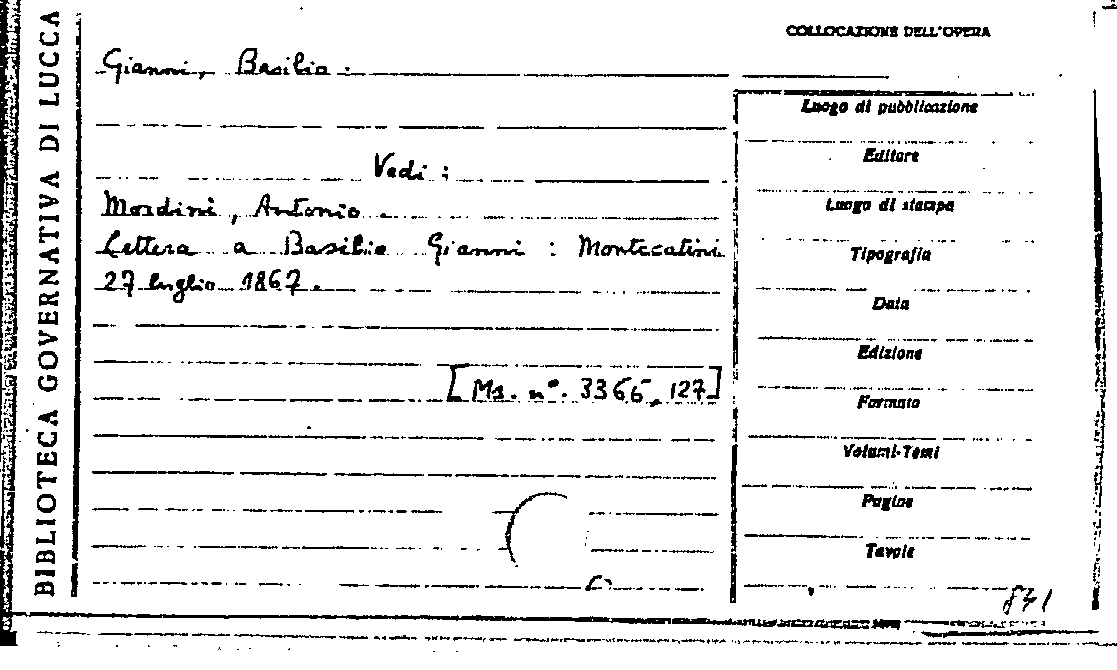 BIBLIOTECA GOVERNATIVA DI LUCCA
COLLOCAZIONE DELL'OPERA
Gianni, Basilio.
Vedi:
Mordini, Antonio.
Lettera a Basilio Gianni: Montecatini
27 luglio 1867.
[Ms. n°. 3366, 127]
Luogo di pubblicazione
Editore
Luogo di stampa
Tipografia
Data
Edizione
Formato
Volumi-Tomi
Pagine
Tavole
841